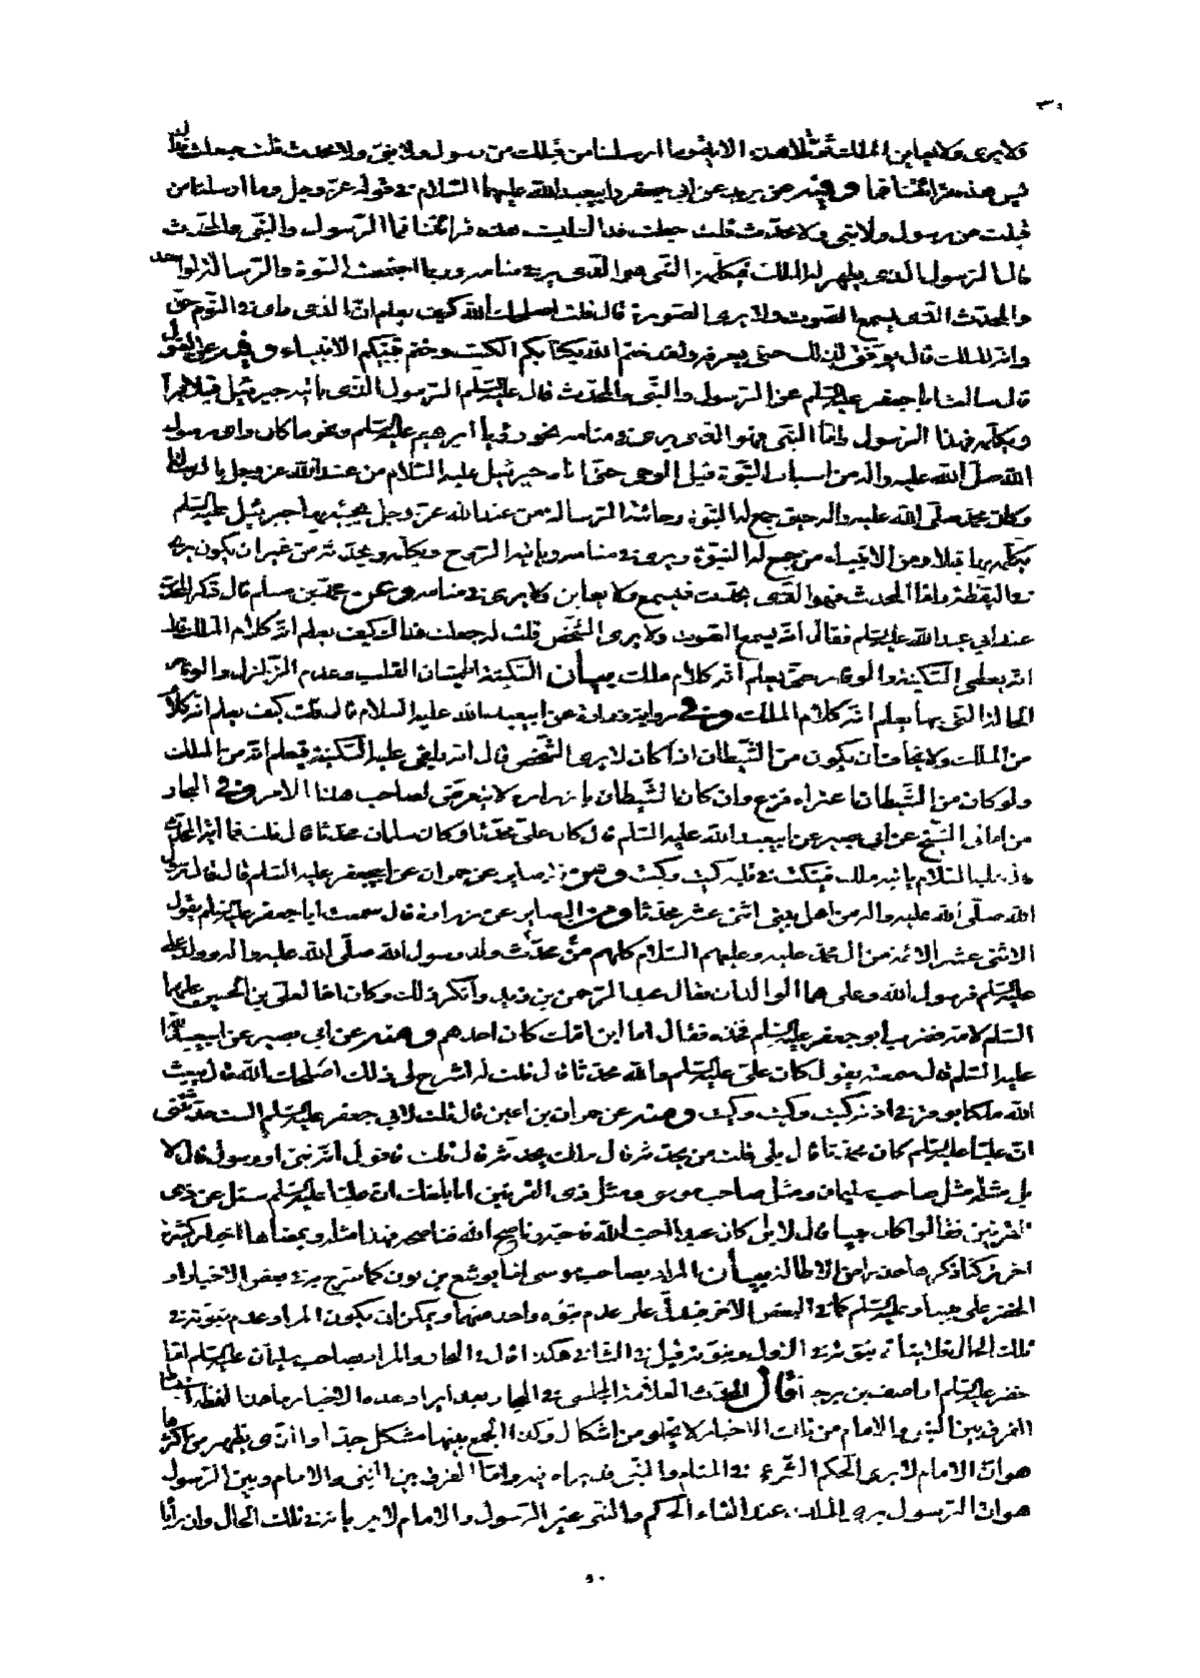 ولا يرى ولا يعاين الملك ثم تلا هذه الاية وما ارسلنا من قبلك من رسول ولا نبى ولا محدث قلت جعلت فداك
ليس هذه قرائتنا فما وفيه عن بريد عن ابى جعفر وابيعبد الله عليهما السلام فى قوله عز وجل وما ارسلنا من
قبلك من رسول ولا نبى ولا محدث قلت جعلت فداك ليست هذه قرائتنا فما الرسول والنبى والمحدث
قال الرسول الذى يظهر له الملك فيكلمه والنبى هو الذى يرى فى منامه وربما اجتمعت النبوة والرسالة لواحد
والمحدث الذى يسمع الصوت ولا يرى الصورة قال قلت اصلحك الله كيف يعلم ان الذى راى فى النوم حق
وانه الملك قال يوفق لذلك حتى يعرفه ولقد ختم الله بكتابكم الكتب وختم بنبيكم الانبياء وفيه عن الاحول
قال سالت ابا جعفر عليه السلم عن الرسول والنبى والمحدث قال عليه السلم الرسول الذى ياتيه جبرئيل قبلا فيراه
ويكلمه فهذا الرسول واما النبى فهو الذى يرى فى منامه نحو رؤيا ابرهيم عليه السلم ونحو ما كان راى رسول
الله صلى الله عليه واله من اسباب النبوة قبل الوحى حتى اتاه جبرئيل عليه السلام من عند الله عز وجل بالرسالة
وكان محمد صلى الله عليه واله حين جمع له النبوة وجائته الرسالة من عند الله عز وجل يجيئه بها جبرئيل عليه السلم
يكلمه بها قبلا ومن الانبياء من جمع له النبوة ويرى فى منامه وياتيه الروح ويكلمه ويحدثه من غير ان يكون يرى
فى اليقظة واما المحدث فهو الذى يحدث فيسمع ولا يعاين ولا يرى فى منامه وعن محمد بن مسلم قال ذكر المحدث
عند ابى عبد الله عليه السلم فقال انه يسمع الصوت ولا يرى الشخص قلت له جعلت فداك كيف يعلم انه كلام الملك قال
انه يعطى السكينة والوقار حتى يعلم انه كلام ملك بيان السكينة اطمينان القلب وعدم التزلزل والوقار
الحالة التى بها يعلم انه كلام الملك وفى رواية زرارة عن ابيعبد الله عليه السلام قال قلت كيف يعلم انه كلام
من الملك ولا يخاف ان يكون من الشيطان اذا كان لا يرى الشخص قال انه يلقى عليه السكينة فيعلم انه من الملك
ولو كان من الشيطان اعتراه فزع وان كان الشيطان يا زرارة لا يتعرض لصاحب هذا الامر وفى البحار
من امالى الشيخ عن ابى بصير عن ابيعبد الله عليه السلم قال كان على محدثا وكان سلمان محدثا قال قلت فما اية المحدث
قال عليه السلام ياتيه ملك فينكت فى قلبه كيت وكيت وعن بصاير عن حمران عن ابيجعفر عليه السلم قال قال رسول
الله صلى الله عليه واله من اهل بيتى اثنى عشر محدثا ومن البصاير عن زرارة قال سمعت ابا جعفر عليه السلم يقول
الاثنى عشر الائمة من ال محمد عليه وعليهم السلام كلهم محدث ولد رسول الله صلى الله عليه واله وولد على
عليه السلم فرسول الله وعلى هما الوالدان فقال عبد الرحمن بن زيد وانكر ذلك وكان اخا لعلى بن الحسين عليهما
السلم لامه فضرب ابو جعفر عليه السلم فخذه فقال اما ابن امك كان احدهم ومنه عن ابى بصير عن ابيعبد الله
عليه السلم قال سمعته يقول كان على عليه السلم والله محدثا قال قلت له اشرح لى ذلك اصلحك الله قال يبعث
الله ملكا يوقر فى اذنه كيت وكيت وكيت ومنه عن حمران بن اعين قال قلت لابى جعفر عليه السلم الست حدثتنى
ان عليا عليه السلم كان محدثا قال بلى قلت من يحدثه قال ملك يحدثه قال قلت فاقول انه نبى او رسول قال لا
بل مثله مثل صاحب سليمان ومثل صاحب موسى ومثل ذى القرنين اما بلغك ان عليا عليه السلم سئل عن ذى
القرنين فقالوا كان نبيا قال لا بل كان عبدا احب الله فاحبه وناصح الله فناصحه فهذا مثله وبمعناها اخبار كثيرة
اخر تركنا ذكرها حذرا من الاطالة بيان المراد بصاحب موسى اما يوشع بن نون كما صرح به فى بعض الاخبار او
الخضر على نبينا وعليه السلم كما فى البعض الاخر فيدل على عدم نبوة واحد منهما ويمكن ان يكون المراد عدم نبوته فى
تلك الحال فلا ينافى نبوته فى الاول ونبوته قبل فى الثانى هكذا قال فى البحار والمراد بصاحب سليمان عليه السلم اما
خضر عليه السلم او اصف بن برخيا قال المحدث العلامة المجلسى فى البحار بعد ايراد عدة من الاخبار ما هذا لفظه استنباط
الفرق بين النبى والامام من تلك الاخبار لا يخلو من اشكال وكذا الجمع بينها مشكل جدا والذى يظهر من اكثرها
هو ان الامام لا يرى الحكم الشرعى فى المنام والنبى قد يراه فيه واما الفرق بين النبى والامام وبين الرسول
هو ان الرسول يرى الملك عند القاء الحكم والنبى غير الرسول والامام لا يريانه فى تلك الحال وان رايا
٥٠